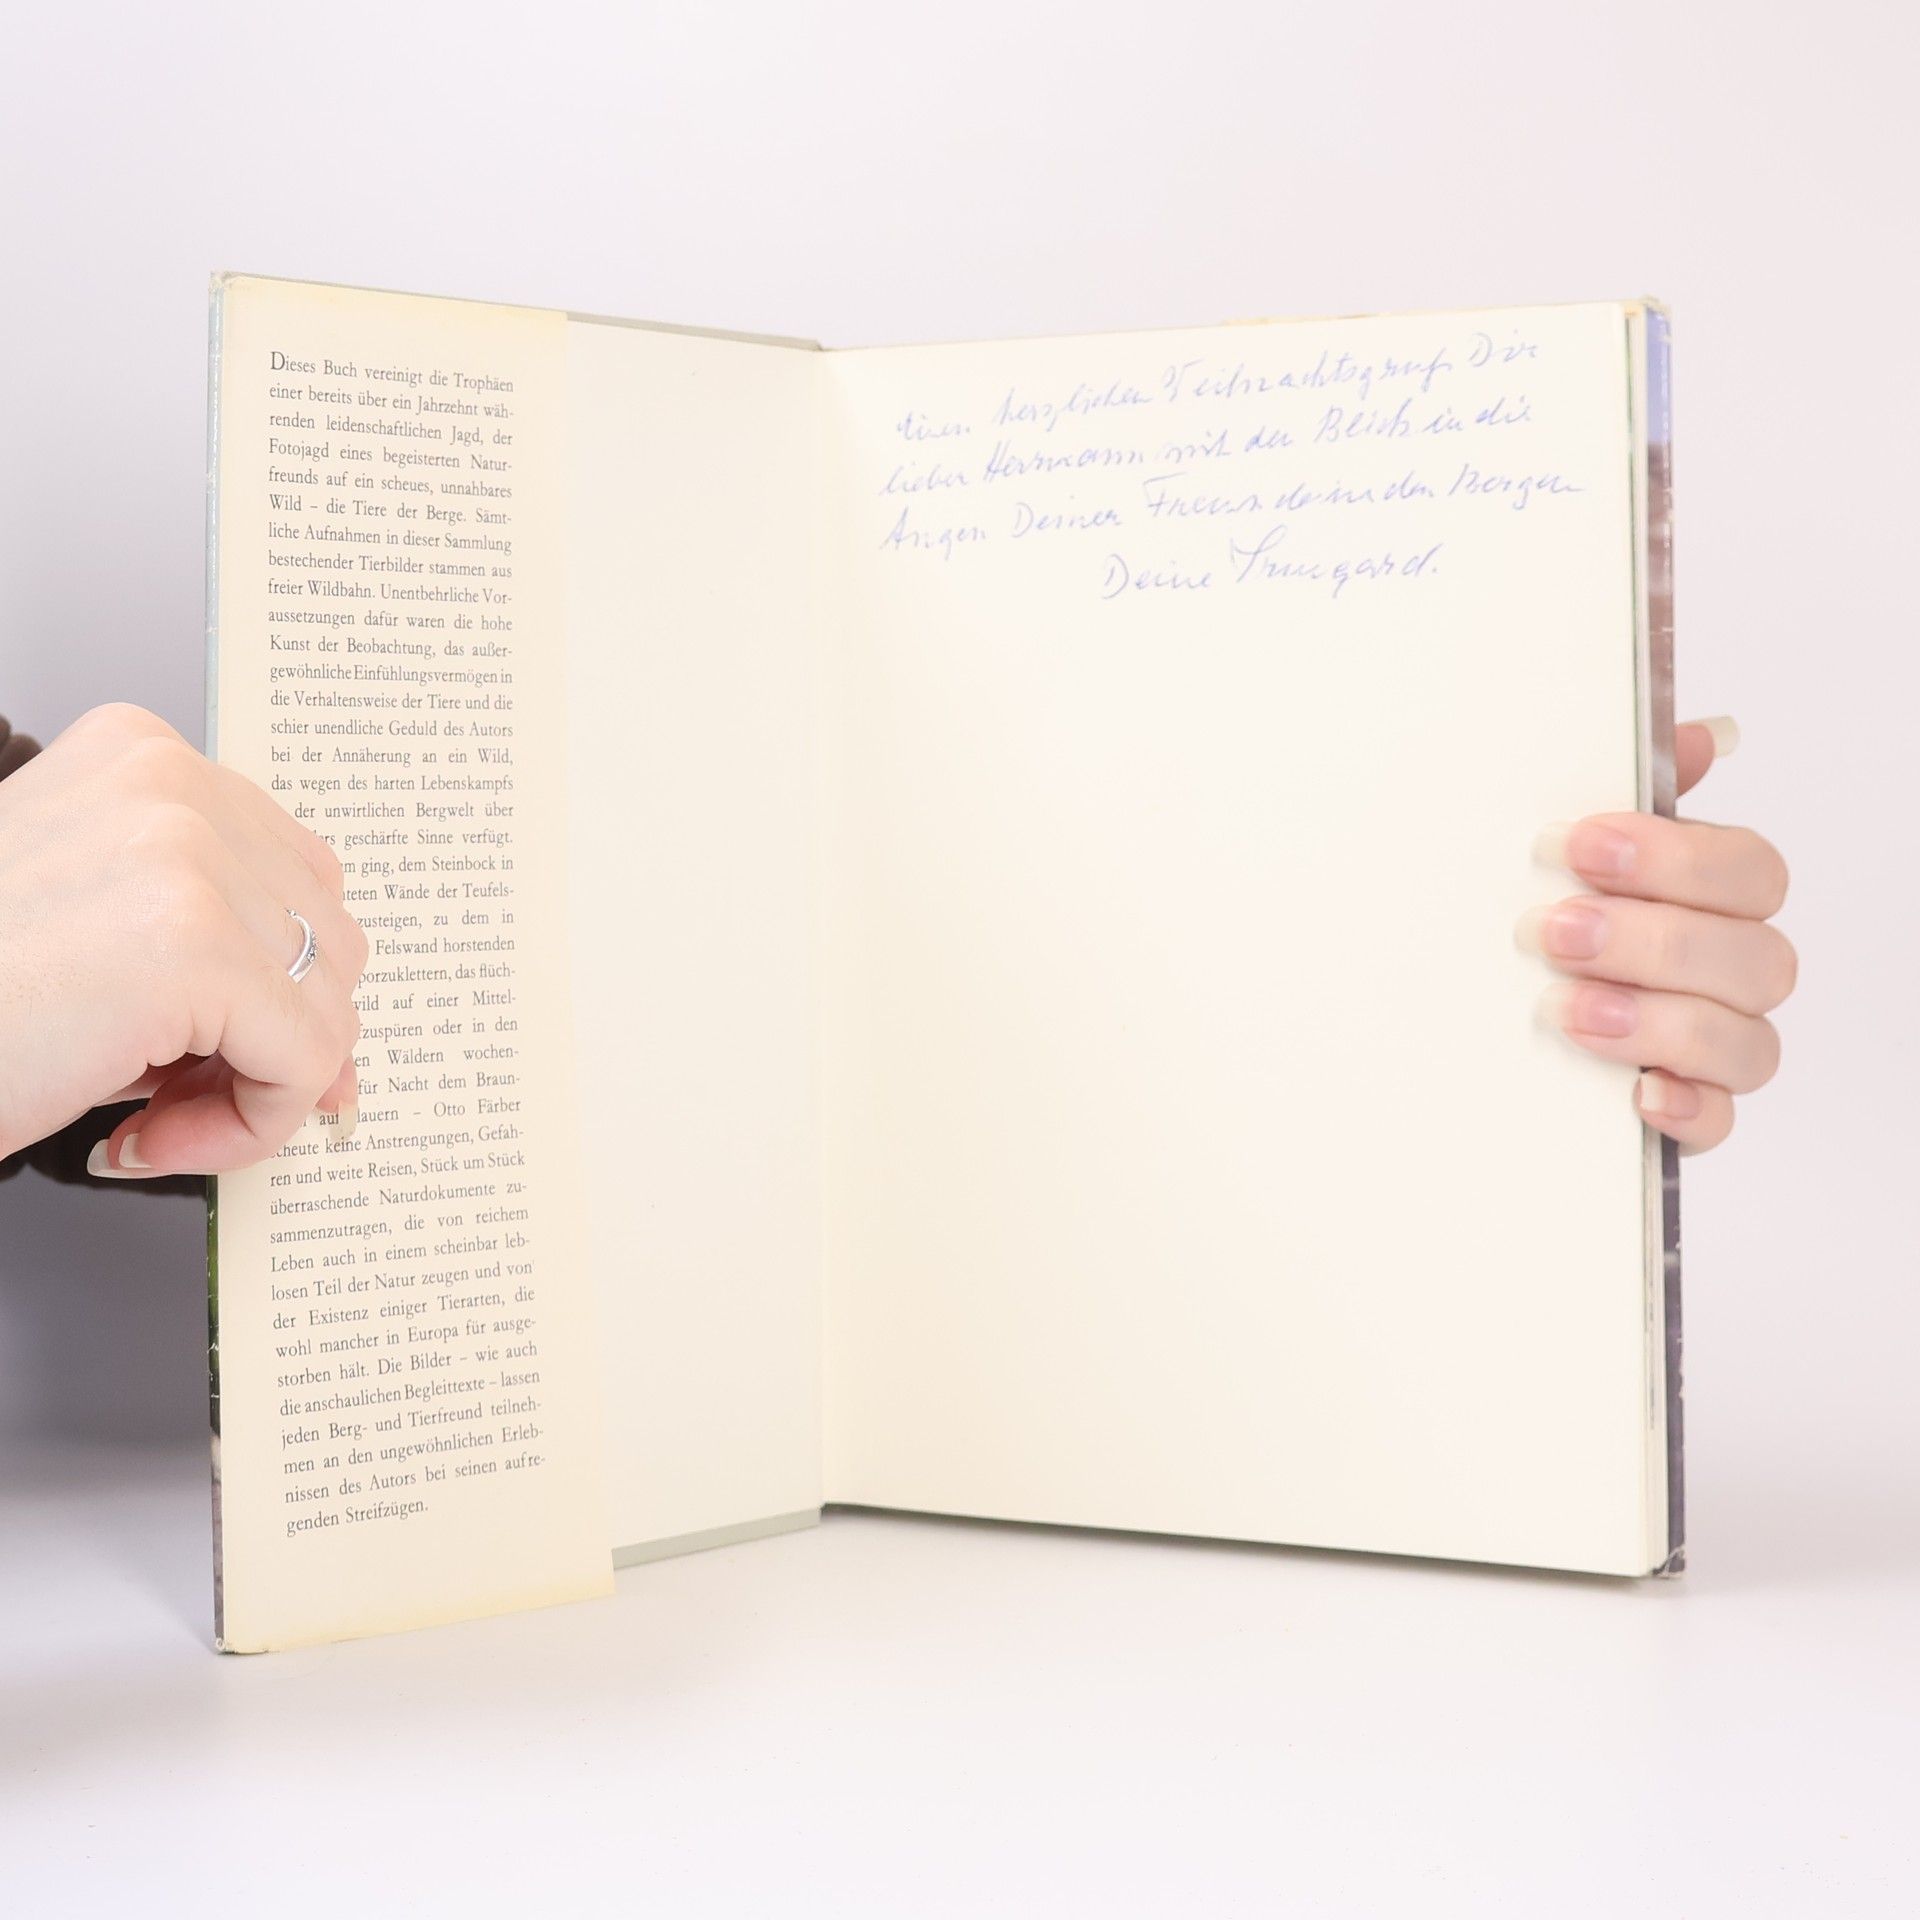 Dieses Buch vereinigt die Trophäen
einer bereits über ein Jahrzehnt wäh-
renden leidenschaftlichen Jagd, der
Fotojagd eines begeisterten Natur-
freunds auf ein scheues, unnahbares
Wild – die Tiere der Berge. Sämt-
liche Aufnahmen in dieser Sammlung
bestechender Tierbilder stammen aus
freier Wildbahn. Unentbehrliche Vor-
aussetzungen dafür waren die hohe
Kunst der Beobachtung, das außer-
gewöhnliche Einfühlungsvermögen in
die Verhaltensweise der Tiere und die
schier unendliche Geduld des Autors
bei der Annäherung an ein Wild,
das wegen des harten Lebenskampfs
der unwirtlichen Bergwelt über
geschärfte Sinne verfügt.
ging, dem Steinbock in
Wände der Teufels-
zusteigen, zu dem in
Felswand horstenden
porzuklettern, das flüch-
wild auf einer Mittel-
zuspüren oder in den
en Wäldern wochen-
für Nacht dem Braun-
auf lauern – Otto Färber
scheute keine Anstrengungen, Gefah-
ren und weite Reisen, Stück um Stück
überraschende Naturdokumente zu-
sammenzutragen, die von reichem
Leben auch in einem scheinbar leb-
losen Teil der Natur zeugen und von
der Existenz einiger Tierarten, die
wohl mancher in Europa für ausge-
storben hält. Die Bilder – wie auch
die anschaulichen Begleittexte – lassen
jeden Berg- und Tierfreund teilneh-
men an den ungewöhnlichen Erleb-
nissen des Autors bei seinen aufre-
genden Streifzügen.
Einen herzlichen Weihnachtsgruß Dir
lieber Hermann mit den Blick in die
Augen Deiner Freunde in den Bergen
Deine Irmgard.